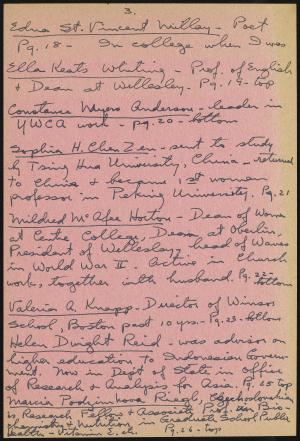 3.
Edna St. Vincent Millay - Poet
Pg. 18 - In college when I was
Ella Keats Whiting - Prof. of English
& Dean at Wellesley. Pg. 19 - top
Constance Myers Anderson - leader in
YWCA work - pg. 20 - bottom
Sophia H. Chen Zen - sent to study
by Tsing Hua University, China - returned
to China & became 1st woman
professor in Peking University. Pg. 21
Mildred McAfee Horton - Dean of Women
at Centre College, Dean at Oberlin.
President of Wellesley, head of Waves
in World War II. Active in Church
work, together with husband. Pg. 22 - bottom
Valeria A. Knapp - Director of Winsor
School, Boston past 10 yrs. - Pg. 23 - bottom
Helen Dwight Reid - was advisor on
higher education to Indonesian Govern-
ment. Now in Dept of State in office
of Research & Analysis for Asia. Pg. 25 top
Marcia Riegl, Czechoslovakian
is, Research Fellow & Associate Prof. Bio-
chemistry & Nutrition in Graduate School Public
Health - Vitamin E, etc. Pg. 26 - top